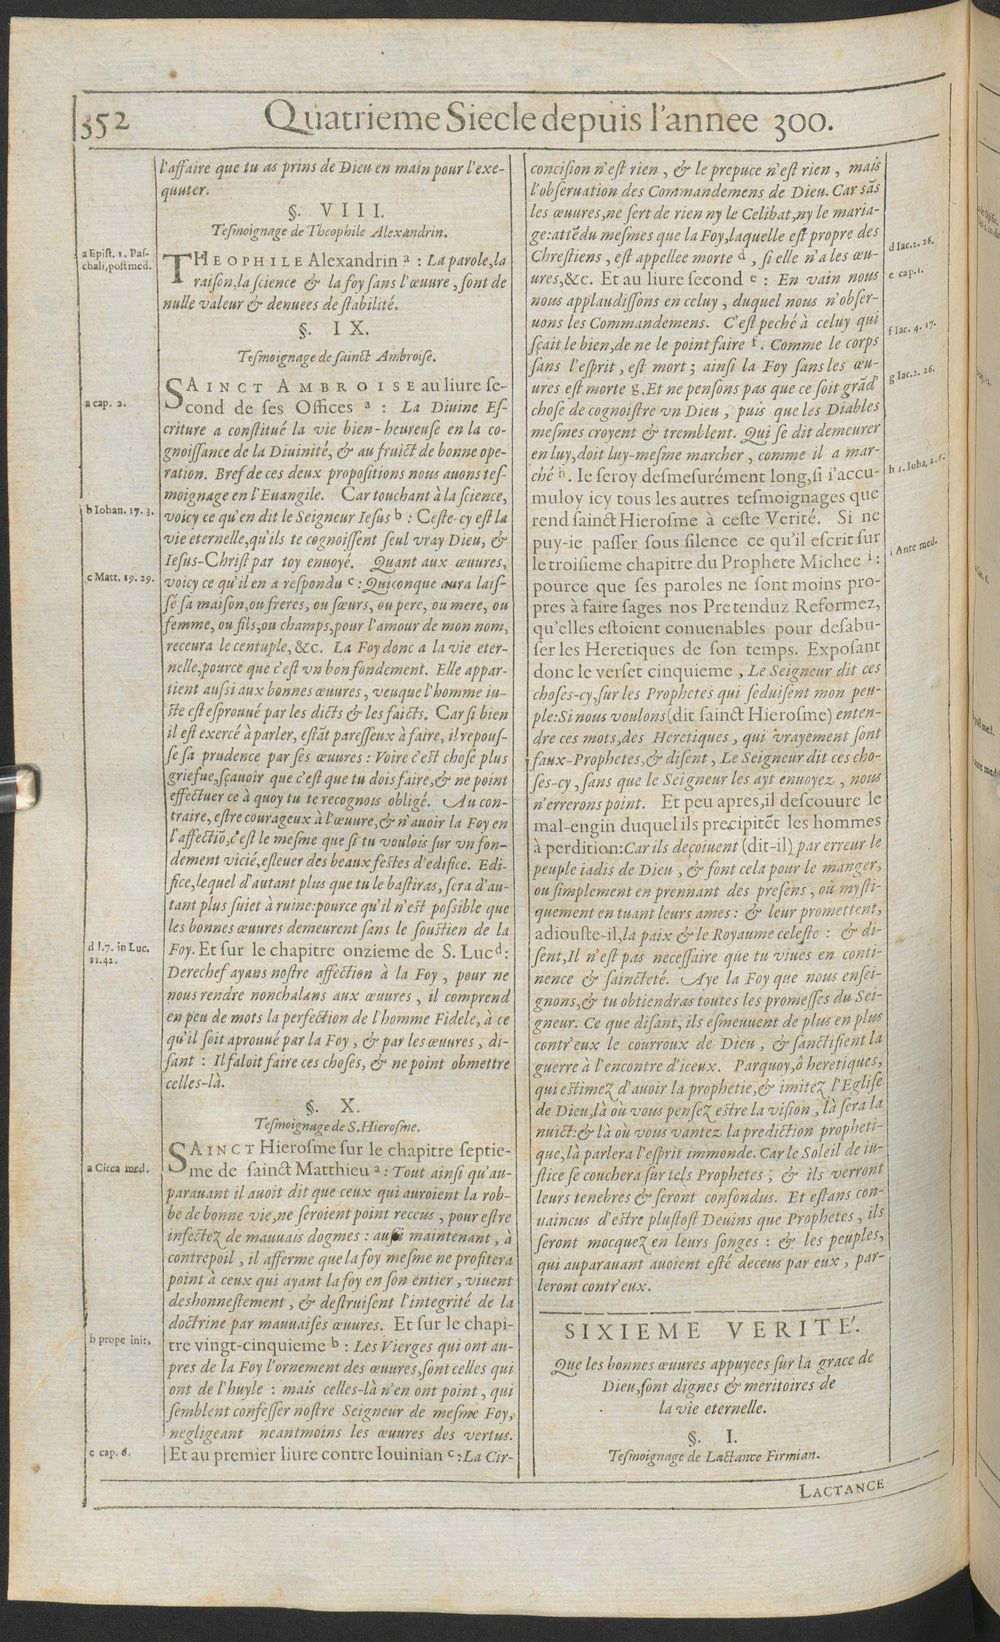 352
Quatrieme Siecle depuis l'annee 300.
l'affaire que tu as prins de Dieu en main pour l'exe-
quuter.
§. VIII.
Tesmoignage de Theophile Alexandrin.
a Epist. 1. Pas-
chali, post med.
THEOPHILE Alexandrin a : La parole, la
raison, la science & la foy sans l'œuure, sont de
nulle valeur & denuees de stabilité.
§. IX.
Tesmoignage de sainct Ambroise.
SAINCT AMBROISE au liure se-
a cap. 2.
cond de ses Offices a : La Diuine Es-
criture a constitué la vie bien-heureuse en la co-
gnoissance de la Diuinité, & au fruict de bonne ope-
ration. Bref de ces deux propositions nous auons tes-
moignage en l'Euangile. Car touchant à la science,
b Iohan. 17. 3.
voicy ce qu'en dit le Seigneur Iesus b : Ceste-cy est la
vie eternelle, qu'ils te cognoissent seul vray Dieu, &
Iesus-Christ par toy enuoyé. Quant aux œuures,
c Matt. 19. 29.
voicy ce qu'il en a respondu c : Quiconque aura lais-
sé sa maison, ou freres, ou sœurs, ou pere, ou mere, ou
femme, ou fils, ou champs, pour l'amour de mon nom,
receura le centuple, &c. La Foy donc a la vie eter-
nelle, pource que c'est vn bon fondement. Elle appar-
tient aussi aux bonnes œuures, veuque l'homme iu-
ste est esprouué par les dicts & les faicts. Car si bien
il est exercé à parler, estāt paresseux à faire, il repous-
se sa prudence par ses œuures : Voire c'est chose plus
griefue, sçauoir que c'est que tu dois faire, & ne point
effectuer ce à quoy tu te recognois obligé. Au con-
traire, estre courageux à l'œuure, & n'auoir la Foy en
l'affectiō, c'est le mesme que si tu voulois sur vn fon-
dement vicié, esleuer des beaux festes d'edifice. Edi-
fice, lequel d'autant plus que tu le bastiras, sera d'au-
tant plus suiet à ruine : pource qu'il n'est possible que
les bonnes œuures demeurent sans le soustien de la
d l. 7. in Luc.
11. 42.
Foy. Et sur le chapitre onzieme de S. Luc d :
Derechef ayans nostre affection à la Foy, pour ne
nous rendre nonchalans aux œuures, il comprend
en peu de mots la perfection de l'homme Fidele, à ce
qu'il soit aprouué par la Foy, & par les œuures, di-
sant : Il faloit faire ces choses, & ne point obmettre
celles-là.
§. X.
Tesmoignage de S. Hierosme.
SAINCT Hierosme sur le chapitre septie-
a Circa med.
me de sainct Matthieu a : Tout ainsi qu'au-
parauant il auoit dit que ceux qui auroient la rob-
be de bonne vie, ne seroient point receus, pour estre
infectez de mauuais dogmes : aussi maintenant, à
contrepoil, il afferme que la foy mesme ne profitera
point à ceux qui ayant la foy en son entier, viuent
deshonnestement, & destruisent l'integrité de la
doctrine par mauuaises œuures. Et sur le chapi-
b prope init.
tre vingt-cinquieme b : Les Vierges qui ont au-
pres de la Foy l'ornement des œuures, sont celles qui
ont de l'huyle : mais celles-là n'en ont point, qui
semblent confesser nostre Seigneur de mesme Foy,
negligeant neantmoins les œuures des vertus.
c cap. 6.
Et au premier liure contre Iouinian c : La Cir-
concision n'est rien, & le prepuce n'est rien, mais
l'obseruation des Commandemens de Dieu. Car sās
les œuures, ne sert de rien ny le Celibat, ny le maria-
ge : attēdu mesmes que la Foy, laquelle est propre des
d Iac. 2. 26.
Chrestiens, est appellee morte d, si elle n'a les œu-
e cap. 1.
ures, &c. Et au liure second e : En vain nous
nous applaudissons en celuy, duquel nous n'obser-
uons les Commandemens. C'est peché à celuy qui
f Iac. 4. 17.
sçait le bien, de ne le point faire f. Comme le corps
sans l'esprit, est mort ; ainsi la Foy sans les œu-
g Iac. 2. 26.
ures est morte g. Et ne pensons pas que ce soit grād
chose de cognoistre vn Dieu, puis que les Diables
mesmes croyent & tremblent. Qui se dit demeurer
en luy, doit luy-mesme marcher, comme il a mar-
h 1. Ioha. 2. 6.
ché h. Ie seroy desmesurément long, si i'accu-
muloy icy tous les autres tesmoignages que
rend sainct Hierosme à ceste Verité. Si ne
puy-ie passer sous silence ce qu'il escrit sur
i Ante med.
le troisieme chapitre du Prophete Michee i :
pource que ses paroles ne sont moins pro-
pres à faire sages nos Pretenduz Reformez,
qu'elles estoient conuenables pour desabu-
ser les Heretiques de son temps. Exposant
donc le verset cinquieme, Le Seigneur dit ces
choses-cy, sur les Prophetes qui seduisent mon peu-
ple : Si nous voulons (dit sainct Hierosme) enten-
dre ces mots, des Heretiques, qui vrayement sont
faux-Prophetes, & disent, Le Seigneur dit ces cho-
ses-cy, sans que le Seigneur les ayt enuoyez, nous
n'errerons point. Et peu apres, il descouure le
mal-engin duquel ils precipitēt les hommes
à perdition : Car ils decoiuent (dit-il) par erreur le
peuple iadis de Dieu, & font cela pour le manger,
ou simplement en prennant des presens, où mysti-
quement en tuant leurs ames : & leur promettent,
adiouste-il, la paix & le Royaume celeste : & di-
sent, Il n'est pas necessaire que tu viues en conti-
nence & saincteté. Aye la Foy que nous ensei-
gnons, & tu obtiendras toutes les promesses du Sei-
gneur. Ce que disant, ils esmeuuent de plus en plus
contr'eux le courroux de Dieu, & sanctifient la
guerre à l'encontre d'iceux. Parquoy, ô heretiques,
qui estimez d'auoir la prophetie, & imitez l'Eglise
de Dieu, là où vous pensez estre la vision, là sera la
nuict : & là où vous vantez la prediction propheti-
que, là parlera l'esprit immonde. Car le Soleil de iu-
stice se couchera sur tels Prophetes ; & ils verront
leurs tenebres & seront confondus. Et estans con-
uaincus d'estre plustost Deuins que Prophetes, ils
seront mocquez en leurs songes : & les peuples,
qui auparauant auoient esté deceus par eux, par-
leront contr'eux.
SIXIEME VERITE'.
Que les bonnes œuures appuyees sur la grace de
Dieu, sont dignes & meritoires de
la vie eternelle.
§. I.
Tesmoignage de Lactance Firmian.
LACTANCE